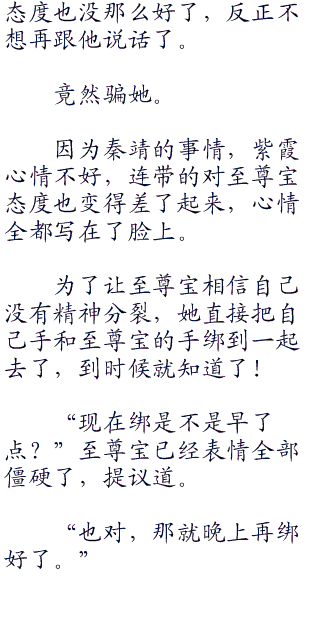 态度也没那么好了，反正不
想再跟他说话了。
竟然骗她。
因为秦靖的事情，紫霞
心情不好，连带的对至尊宝
态度也变得差了起来，心情
全都写在了脸上。
为了让至尊宝相信自己
没有精神分裂，她直接把自
己手和至尊宝的手绑到一起
去了，到时候就知道了！
“现在绑是不是早了
点？”至尊宝已经表情全部
僵硬了，提议道。
“也对，那就晚上再绑
好了。”